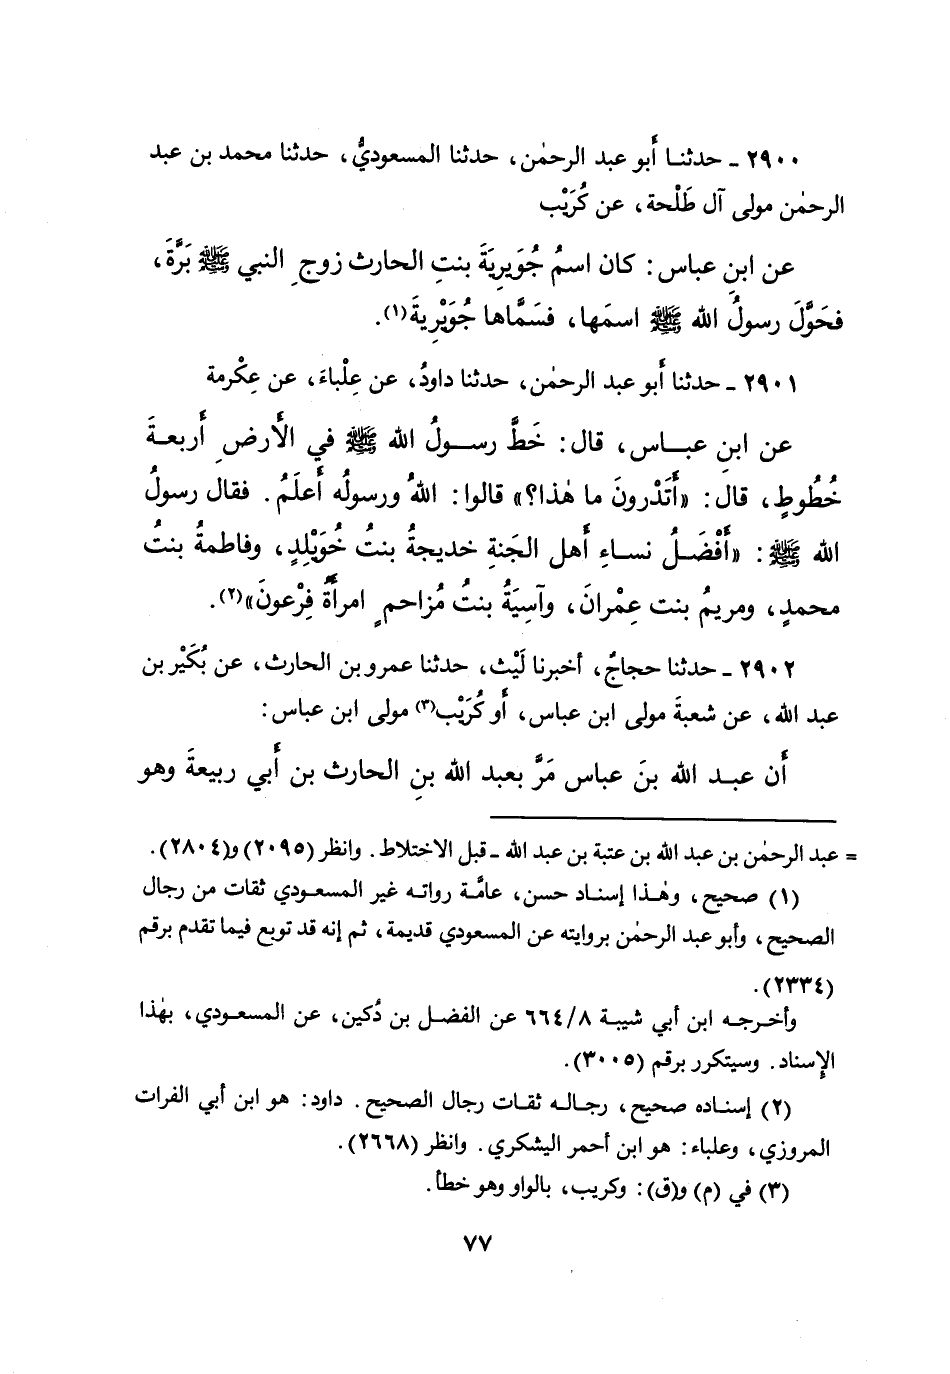 ٢٩٠٠ ـ حدثنا أَبو عبد الرحمٰن، حدثنا المسعوديُّ، حدثنا محمد بن عبد
الرحمٰن مولى آل طَلْحة، عن كُرَيْب
عن ابنِ عباس: كان اسمُ جُوَيرِيَةَ بنتِ الحارث زوجِ النبي ﷺ بَرَّةَ،
فحَوَّلَ رسولُ الله ﷺ اسمَها، فسَمَّاها جُوَيْرِيةَ(١).
٢٩٠١ ـ حدثنا أَبو عبد الرحمٰن، حدثنا داودُ، عن عِلْباءَ، عن عِكْرمة
عن ابنِ عبـاس، قال: خَطَّ رسـولُ الله ﷺ في الأَرضِ أَربعـةَ
خُطُوطٍ، قال: «أَتَدْرونَ ما هٰذا؟» قالوا: اللهُ ورسولُه أَعلَمُ. فقال رسولُ
الله ﷺ: «أَفْضَـلُ نسـاءِ أَهل الجَنةِ خديجةُ بنتُ خُوَيْلِدٍ، وفاطمةُ بنتُ
محمدٍ، ومريمُ بنت عِمْرانَ، وآسِيَةُ بنتُ مُزاحمٍ امرأَةُ فِرْعونَ»(٢).
٢٩٠٢ ـ حدثنا حجاجُ، أخبرنا لَيْث، حدثنا عمرو بن الحارث، عن بُكَيْر بن
عبد الله، عن شعبةَ مولى ابن عباس، أَو كُرَيْب(٣) مولى ابن عباس:
أَن عبـد الله بنَ عباس مَرَّ بعبد الله بنِ الحارث بن أَبي ربيعةَ وهو
= عبد الرحمٰن بن عبد الله بن عتبة بن عبد الله ـ قبل الاختلاط. وانظر (٢٠٩٥) و(٢٨٠٤).
(١) صحيح، وهٰـذا إسناد حسن، عامَّة رواته غير المسعودي ثقات من رجال
الصحيح، وأبو عبد الرحمٰن بروايته عن المسعودي قديمة، ثم إنه قد توبع فيما تقدم برقم
(٢٣٣٤).
وأخـرجـه ابن أبي شيبة ٦٦٤/٨ عن الفضـل بن دُكين، عن المسعـودي، بهٰذا
الإِسناد. وسيتكرر برقم (٣٠٠٥).
(٢) إسنـاده صحيح، رجـالـه ثقـات رجال الصحيح. داود: هو ابن أبي الفرات
المروزي، وعلباء: هو ابن أحمر اليشكري. وانظر (٢٦٦٨).
(٣) في (م) و(ق): وكريب، بالواو وهو خطأ.
٧٧